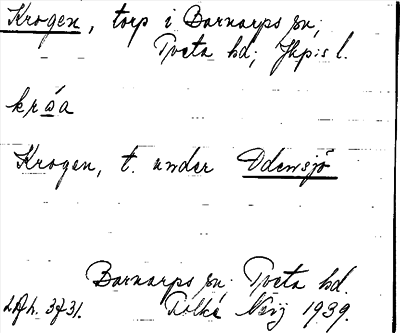 Krogen, torp i Barnarps sn;
Tveta hd; Jkp:s l.
kråa
Krogen, t. under Odensjö
Barnarps sn. Tveta hd.
Folke Neij 1939.